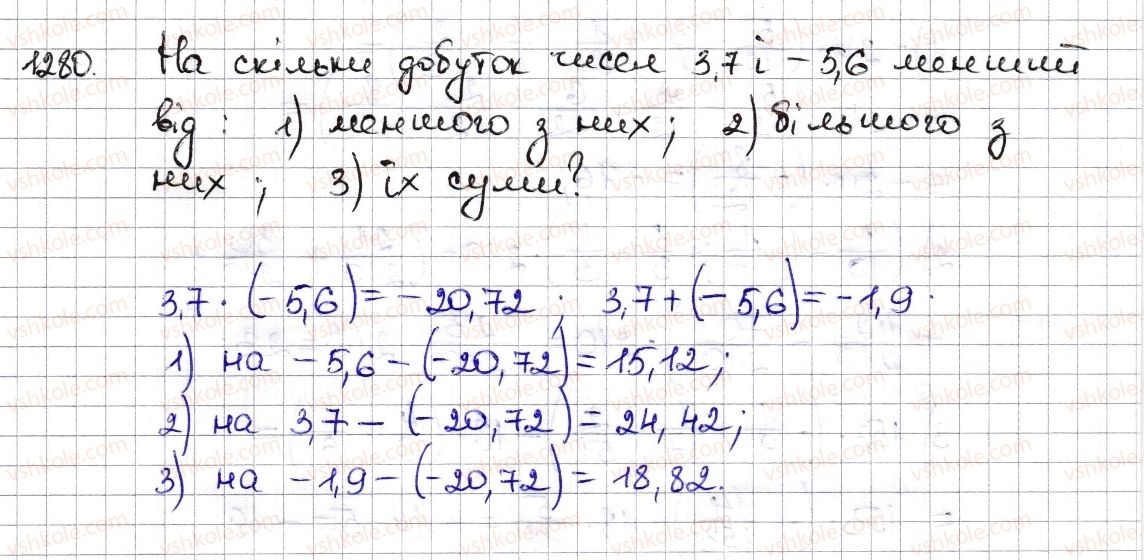 1280. На скільки добуток чисел 3,7 і -5,6 менший
від: 1) меншого з них; 2) більшого з
них; 3) їх суми?
3,7 · (-5,6) = -20,72; 3,7 + (-5,6) = -1,9.
1) на -5,6 - (-20,72) = 15,12;
2) на 3,7 - (-20,72) = 24,42;
3) на -1,9 - (-20,72) = 18,82.